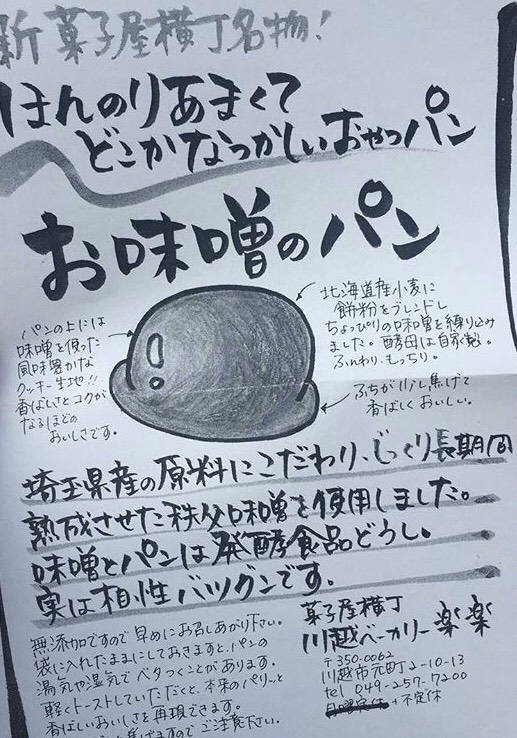 新菓子屋横丁名物!
ほんのりあまくて
どこかなつかしいおやつパン
お味噌のパン
パンの上には
味噌を使った
風味豊かな
クッキー生地!!
香ばしさとコクが
なるほどの
おいしさです。
北海道産小麦に
餅粉をブレンドし
ちょっぴりの味噌を練り込み
ました。酵母は自家製。
ふんわり、もっちり。
ふちが少し焦げて
香ばしくおいしい。
埼玉県産の原料にこだわり、じっくり長期間
熟成させた秩父味噌を使用しました。
味噌とパンは発酵食品どうし。
実は相性バツグンです。
無添加ですので早めにお召しあがり下さい。
袋に入れたままにしておきますと、パンの
湯気や湿気でベタつくことがあります。
軽くトーストしていただくと、本来のパリッと
香ばしいおいしさを再現できます。
焦げますのでご注意下さい。
菓子屋横丁
川越ベーカリー楽楽
〒350-0062
川越市元町2-10-13
tel 049-257-7200
不定休